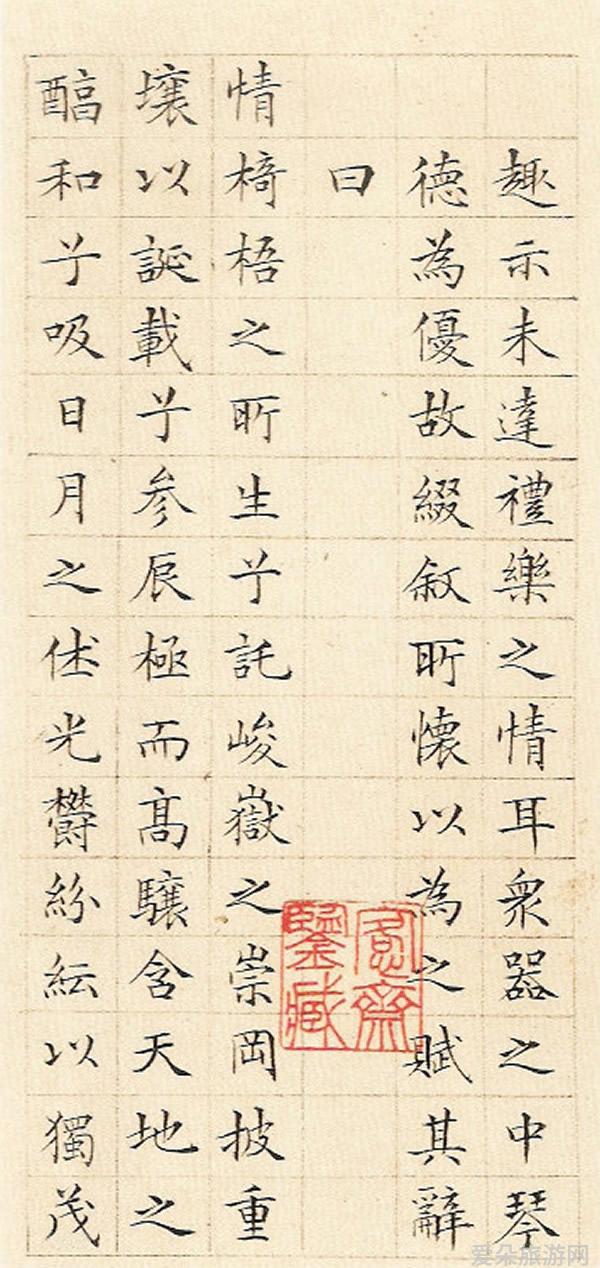 趣示未達禮樂之情耳衆器之中琴
德為優故綴叙所懷以為之賦其辭
曰
情椅梧之所生兮託峻嶽之崇岡披重
壤以誕載兮参辰極而髙驤含天地之
醕和兮吸日月之休光鬱紛紜以獨茂
愙齋鑒藏
爱朵旅游网